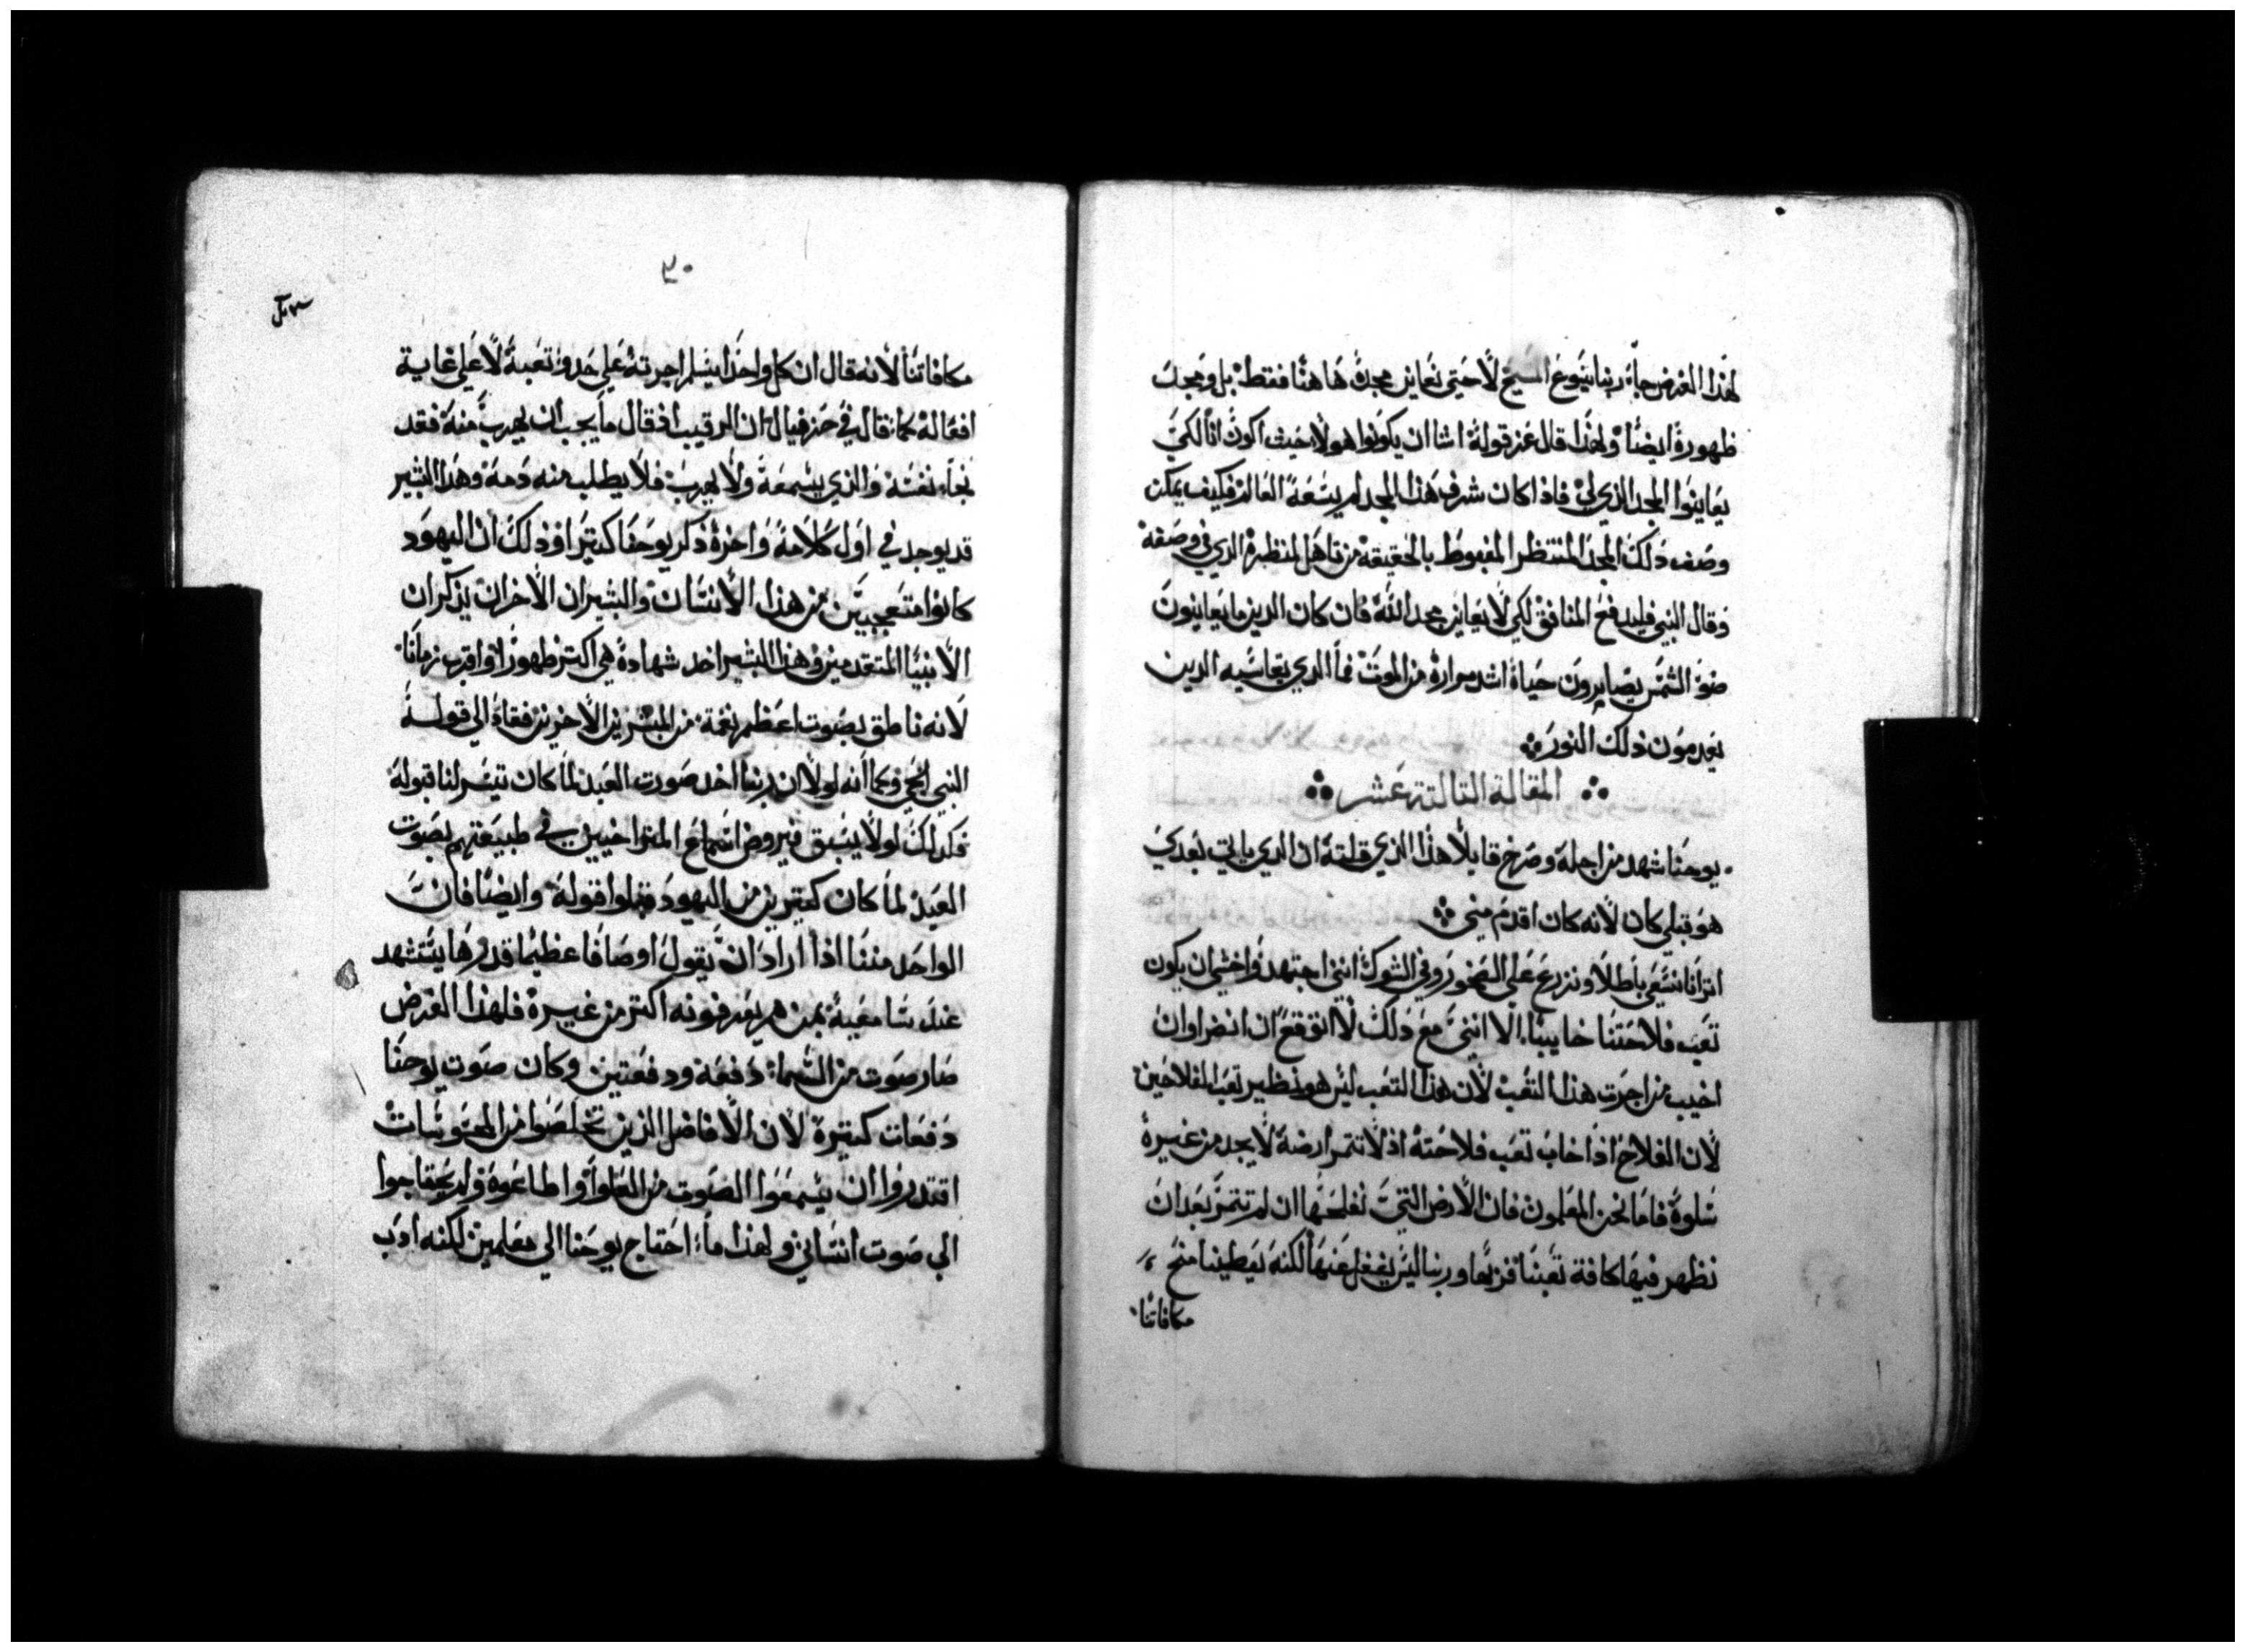 لهذا الغرض جاء ربنا يسوع المسيح لا حتى نعاين مجده هاهنا فقط بل ومجد
ظهوره ايضا ولهذا قال عنه قوله اشا ان يكونوا هولا حيث اكون انا لكي
يعاينوا المجد الذي لي فاذا كان شرف هذا المجد لم يسعه العالم فكيف يمكن
وصف ذلك المجد المنتظر المغبوط بالحقيقة من تاهل لمنظره الذي في وصفه
وقال النبي فليدفع المنافق لكي لا يعاين مجد الله فان كان الدين ما يعاينون
ضو الشمس يصابرون حياة اشد مرارة من الموت فما الدي يقاسيه الدين
يعدمون ذلك النور
المقالة التالتة عشر
يوحنا شهد من اجله وصرخ قايلا هذا الذي قلته ان الدي ياتي بعدي
هو قبلي كان لانه كان اقدم مني
اترانا نسعى باطلا ونزرع على الصخور وفي الشوك انني اجتهد واخشى ان يكون
تعب فلاحتنا خايبا الا انني مع دلك لا اتوقع ان انضر او ان
اخيب من اجرت هذا التعب لان هذا التعب ليس هو نظير تعب الفلاحين
لان الفلاح اذا خاب تعب فلاحته اذ لا تتمر ارضه لا يجد من غيره
سلوة فاما نحن المعلمون فان الارض التي نفلحها ان لم تتمر بعد ان
نظهر فيها كافة تعبنا وربنا ليس يغفل عنها لكنه يعطينا منح
مكافاتنا
٣٠
مكافاتنا لانه قال ان كل واحدا يتسلم اجرته على حدو تعبه لا على غاية
افعاله كما قال في حزقيال ان الرقيب اذ قال ما يجب ان يهرب منه فقد
نجا نفسه والذي يسمعه ولا يهرب فلا يطلب منه دمه وهذا البشير
قد يوجد في اول كلامه واخره ذكر يوحنا كتيرا وذلك ان اليهود
كانوا متعجبين من هذا الانسان والبشيران الاخران يذكران
الانبيا المتقدمين وهذا البشير اخد شهادة هي اكتر ظهورا واقرب زمانا
لانه ناطق بصوت اعظم نغمة من المبشرين الاخرين فقاد الى قوله
النبي الحي وكما انه لولا ان ربنا اخد صورت العبد لما كان تيسر لنا قبوله
فكدلك لو لا يسبق فيروض اسماع المتواخيين في طبيعتهم بصوت
العبد لما كان كتيرين من اليهود قبلوا قوله وايضا فان
الواحد مننا اذا اراد ان يقول اوصافا عظيما قدرها يستشهد
عند سامعيه بمن هم يعرفونه اكتر من غيره فلهذا الغرض
صار صوت من السماء دفعة ودفعتين وكان صوت يوحنا
دفعات كتيرة لان الافاضل الذين تخلصوا من المحسوسات
اقتدروا ان يسمعوا الصوت من العلو واطاعوه ولم يحتاجوا
الى صوت انساني ولهذا ما احتاج يوحنا الى معلمين لكنه ادب